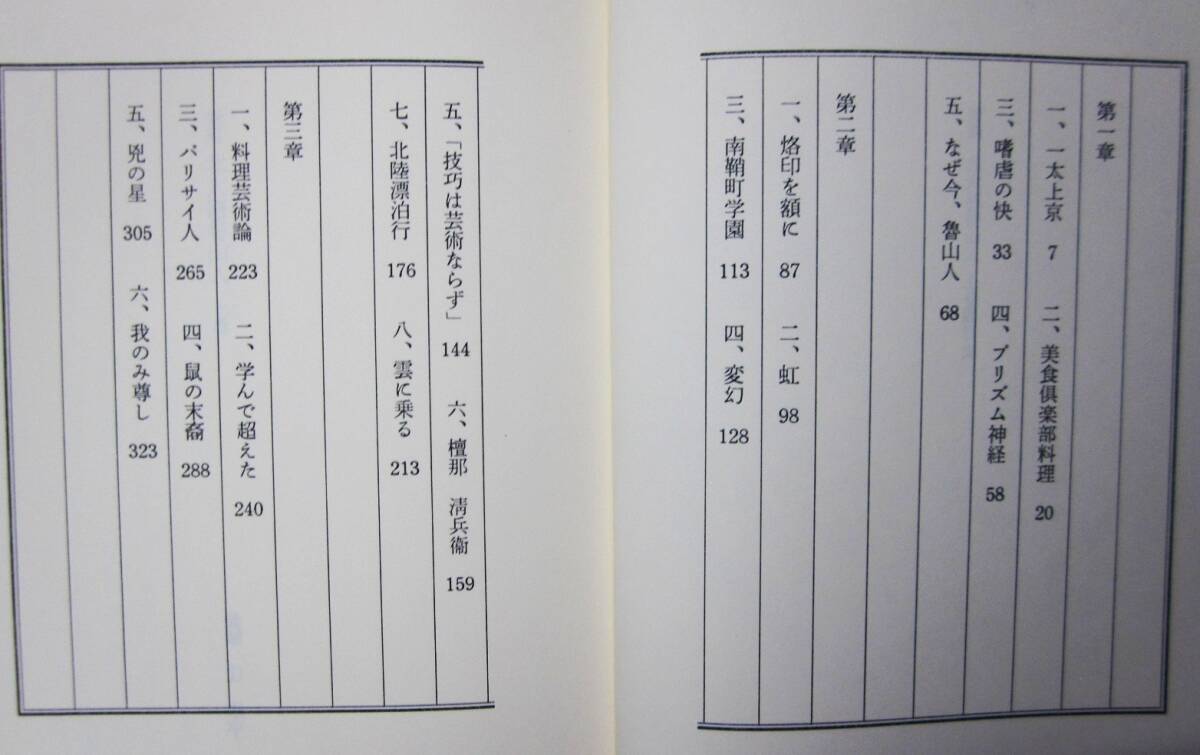 第一章
一、一太上京 7 二、美食倶楽部料理 20
三、嗜虐の快 33 四、プリズム神経 58
五、なぜ今、魯山人 68
第二章
一、烙印を額に 87 二、虹 98
三、南鞘町学園 113 四、変幻 128
五、「技巧は芸術ならず」 144 六、檀那 淸兵衞 159
七、北陸漂泊行 176 八、雲に乗る 213
第三章
一、料理芸術論 223 二、学んで超えた 240
三、パリサイ人 265 四、鼠の末裔 288
五、兇の星 305 六、我のみ尊し 323